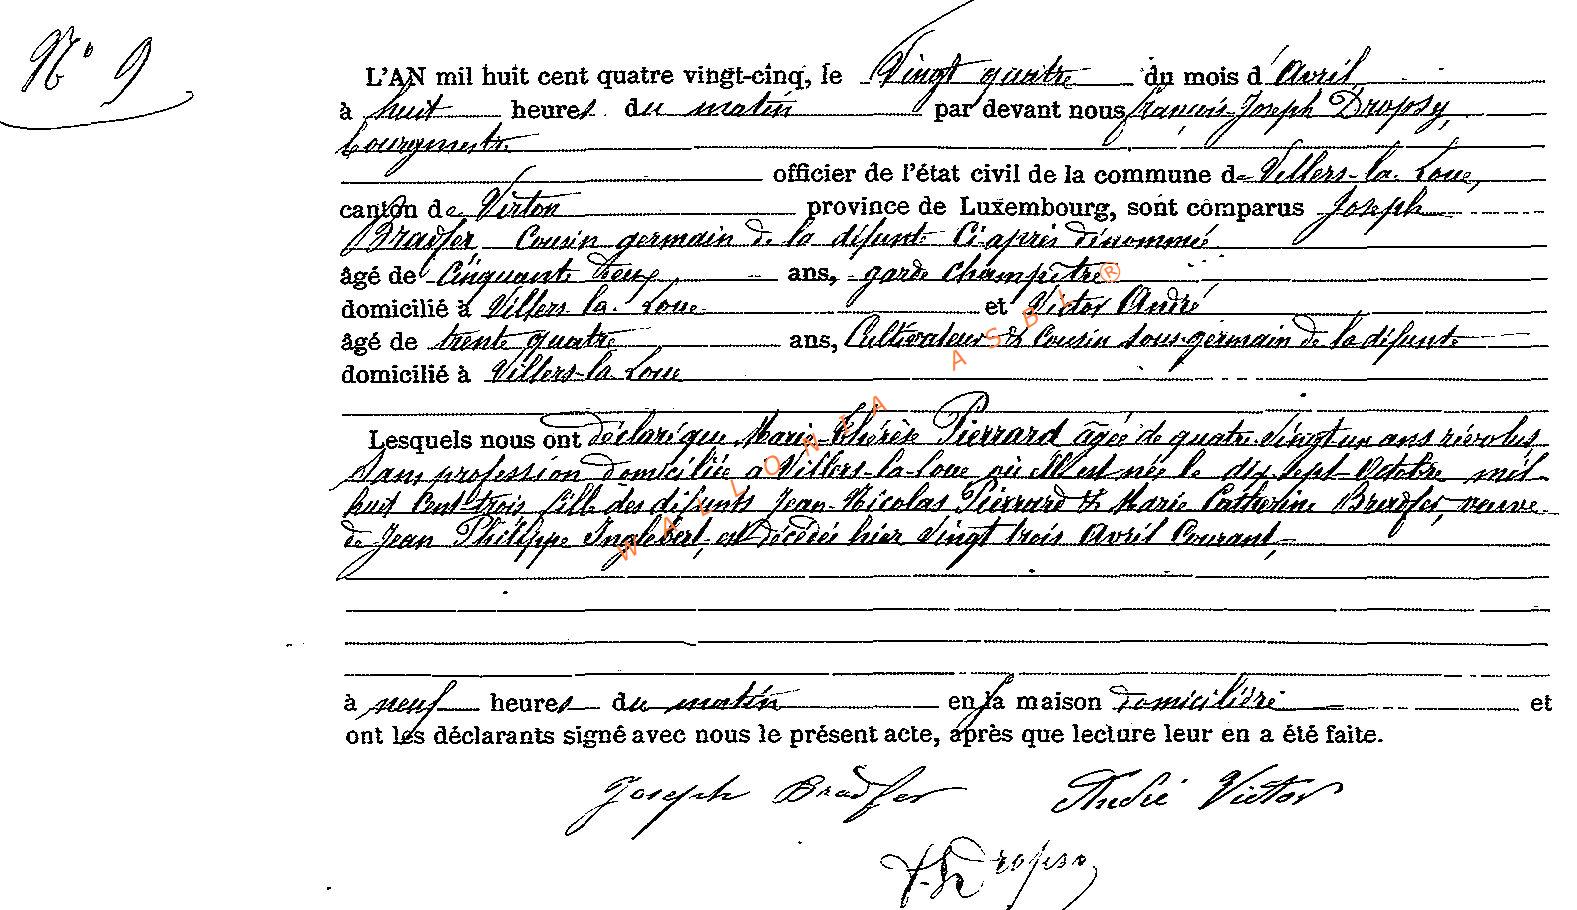 N° 9
L'AN mil huit cent quatre vingt-cinq, le Vingt quatre du mois d'Avril
à huit heures du matin par devant nous françois Joseph Dropsy,
bourgmestre
officier de l'état civil de la commune de Villers-la-Loue,
canton de Virton province de Luxembourg, sont comparus Joseph
Bradfer Cousin germain de la défunte Ci-après dénommé
âgé de Cinquante deux ans, garde champêtre
domicilié à Villers-la-Loue et Victor André
âgé de trente quatre ans, Cultivateur & Cousin sous-germain de la défunte
domicilié à Villers-la-Loue
Lesquels nous ont déclaré que Marie-Thérèse Pierrard âgée de quatre-Vingt un ans révolus,
Sans profession domiciliée à Villers-la-loue où Elle est née le dix sept Octobre mil
huit Cent trois fille des défunts Jean-Nicolas Pierrard & Marie Catherine Bradfer, veuve
de Jean Philippe Inglebert, est décédée hier Vingt trois Avril Courant,
à neuf heures du matin en sa maison domicilière et
ont les déclarants signé avec nous le présent acte, après que lecture leur en a été faite.
Joseph Bradfer André Victor
Dropsy
WALLONIA ASBL®